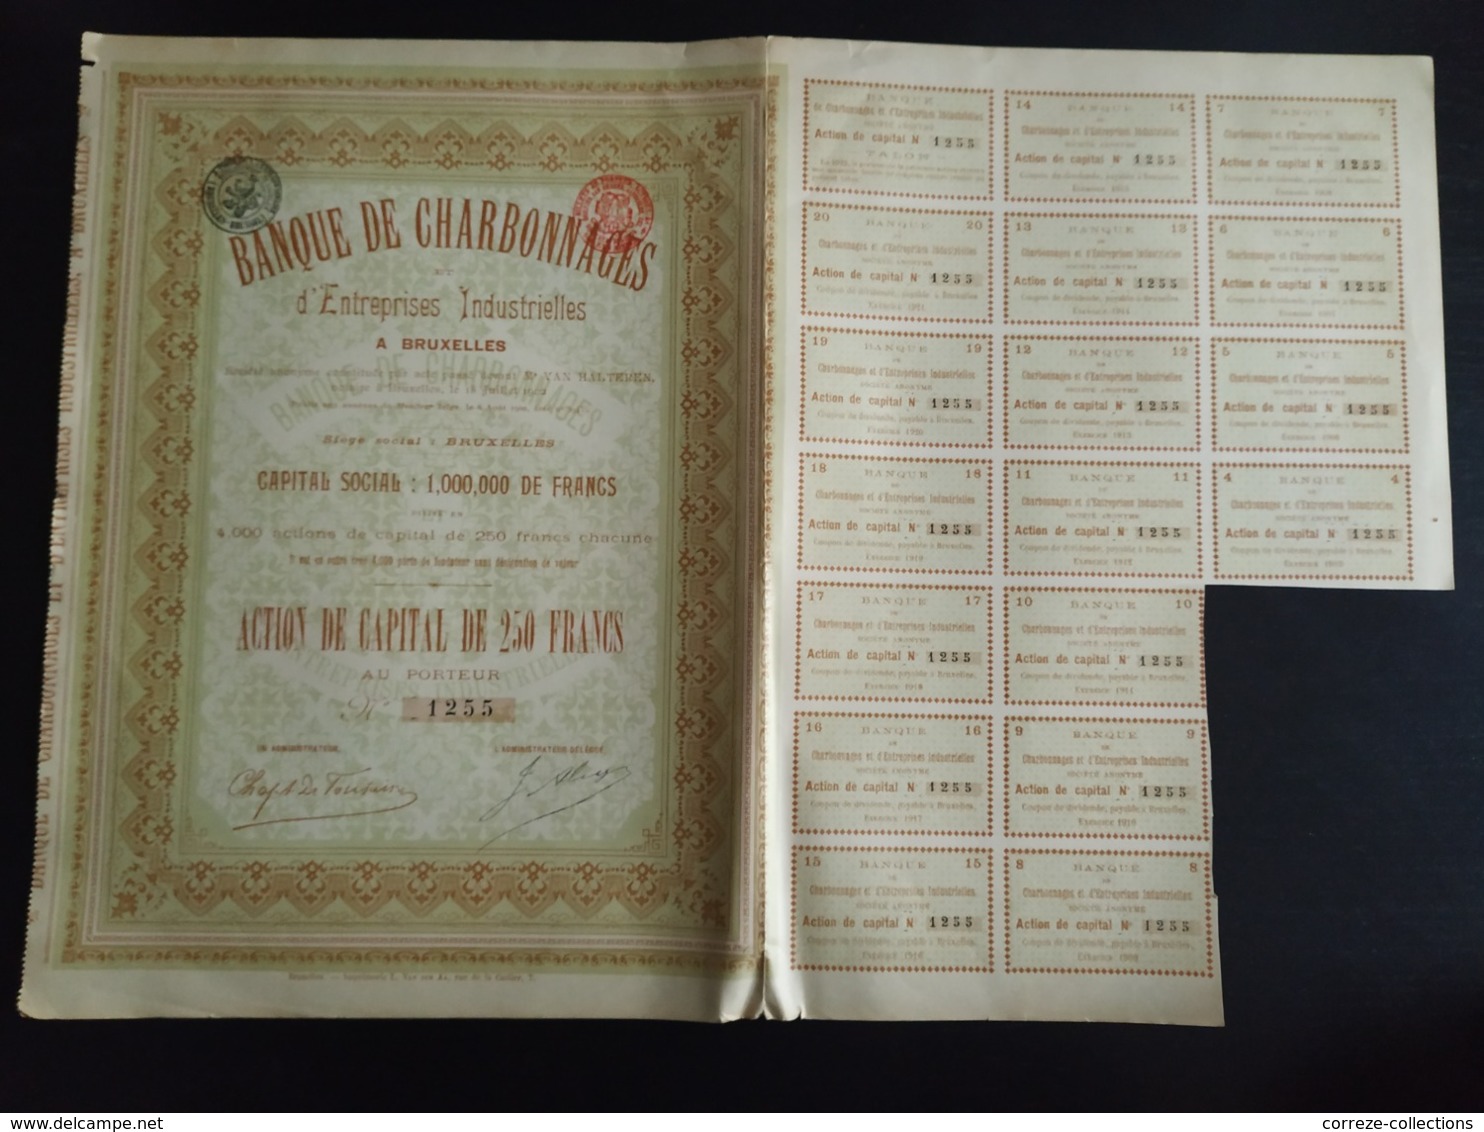 BANQUE DE CHARBONNAGES
ET
d'Entreprises Industrielles
A BRUXELLES
VAN HALTEREN,
Siège social : BRUXELLES
CAPITAL SOCIAL : 1,000,000 DE FRANCS
DIVISÉ EN
4.000 actions de capital de 250 francs chacune
ACTION DE CAPITAL DE 250 FRANCS
AU PORTEUR
N° 1255
UN ADMINISTRATEUR,
L'ADMINISTRATEUR DÉLÉGUÉ,
BANQUE DE CHARBONNAGES ET D'ENTREPRISES INDUSTRIELLES, A BRUXELLES
BANQUE
de Charbonnages et d'Entreprises Industrielles
SOCIÉTÉ ANONYME
Action de capital N 1255
TALON
14 BANQUE 14
DE
Charbonnages et d'Entreprises Industrielles
SOCIÉTÉ ANONYME
Action de capital N° 1255
7 BANQUE 7
DE
Charbonnages et d'Entreprises Industrielles
SOCIÉTÉ ANONYME
Action de capital N° 1255
20 BANQUE 20
DE
Charbonnages et d'Entreprises Industrielles
SOCIÉTÉ ANONYME
Action de capital N 1255
Coupon de dividende, payable à Bruxelles.
13 BANQUE 13
DE
Charbonnages et d'Entreprises Industrielles
SOCIÉTÉ ANONYME
Action de capital N° 1255
Coupon de dividende, payable à Bruxelles.
6 BANQUE 6
DE
Charbonnages et d'Entreprises Industrielles
SOCIÉTÉ ANONYME
Action de capital N° 1255
Coupon de dividende, payable à Bruxelles.
19 BANQUE 19
DE
Charbonnages et d'Entreprises Industrielles
SOCIÉTÉ ANONYME
Action de capital N° 1255
Coupon de dividende, payable à Bruxelles.
12 BANQUE 12
DE
Charbonnages et d'Entreprises Industrielles
SOCIÉTÉ ANONYME
Action de capital N° 1255
Coupon de dividende, payable à Bruxelles.
5 BANQUE 5
DE
Charbonnages et d'Entreprises Industrielles
SOCIÉTÉ ANONYME
Action de capital N° 1255
Coupon de dividende, payable à Bruxelles.
18 BANQUE 18
DE
Charbonnages et d'Entreprises Industrielles
SOCIÉTÉ ANONYME
Action de capital N° 1255
Coupon de dividende, payable à Bruxelles.
11 BANQUE 11
DE
Charbonnages et d'Entreprises Industrielles
SOCIÉTÉ ANONYME
Action de capital N° 1255
Coupon de dividende, payable à Bruxelles.
4 BANQUE 4
DE
Charbonnages et d'Entreprises Industrielles
SOCIÉTÉ ANONYME
Action de capital N° 1255
Coupon de dividende, payable à Bruxelles.
17 BANQUE 17
DE
Charbonnages et d'Entreprises Industrielles
SOCIÉTÉ ANONYME
Action de capital N° 1255
Coupon de dividende, payable à Bruxelles.
EXERCICE 1918
10 BANQUE 10
DE
Charbonnages et d'Entreprises Industrielles
SOCIÉTÉ ANONYME
Action de capital N° 1255
Coupon de dividende, payable à Bruxelles.
16 BANQUE 16
DE
Charbonnages et d'Entreprises Industrielles
SOCIÉTÉ ANONYME
Action de capital N° 1255
Coupon de dividende, payable à Bruxelles.
EXERCICE 1917
9 BANQUE 9
DE
Charbonnages et d'Entreprises Industrielles
SOCIÉTÉ ANONYME
Action de capital N° 1255
Coupon de dividende, payable à Bruxelles.
EXERCICE 1910
15 BANQUE 15
DE
Charbonnages et d'Entreprises Industrielles.
SOCIÉTÉ ANONYME
Action de capital N° 1255
Coupon de dividende, payable à Bruxelles.
EXERCICE 1916
8 BANQUE 8
DE
Charbonnages et d'Entreprises Industrielles
SOCIÉTÉ ANONYME
Action de capital N° 1255
Coupon de dividende, payable à Bruxelles.
www.delcampe.net
correze-collections